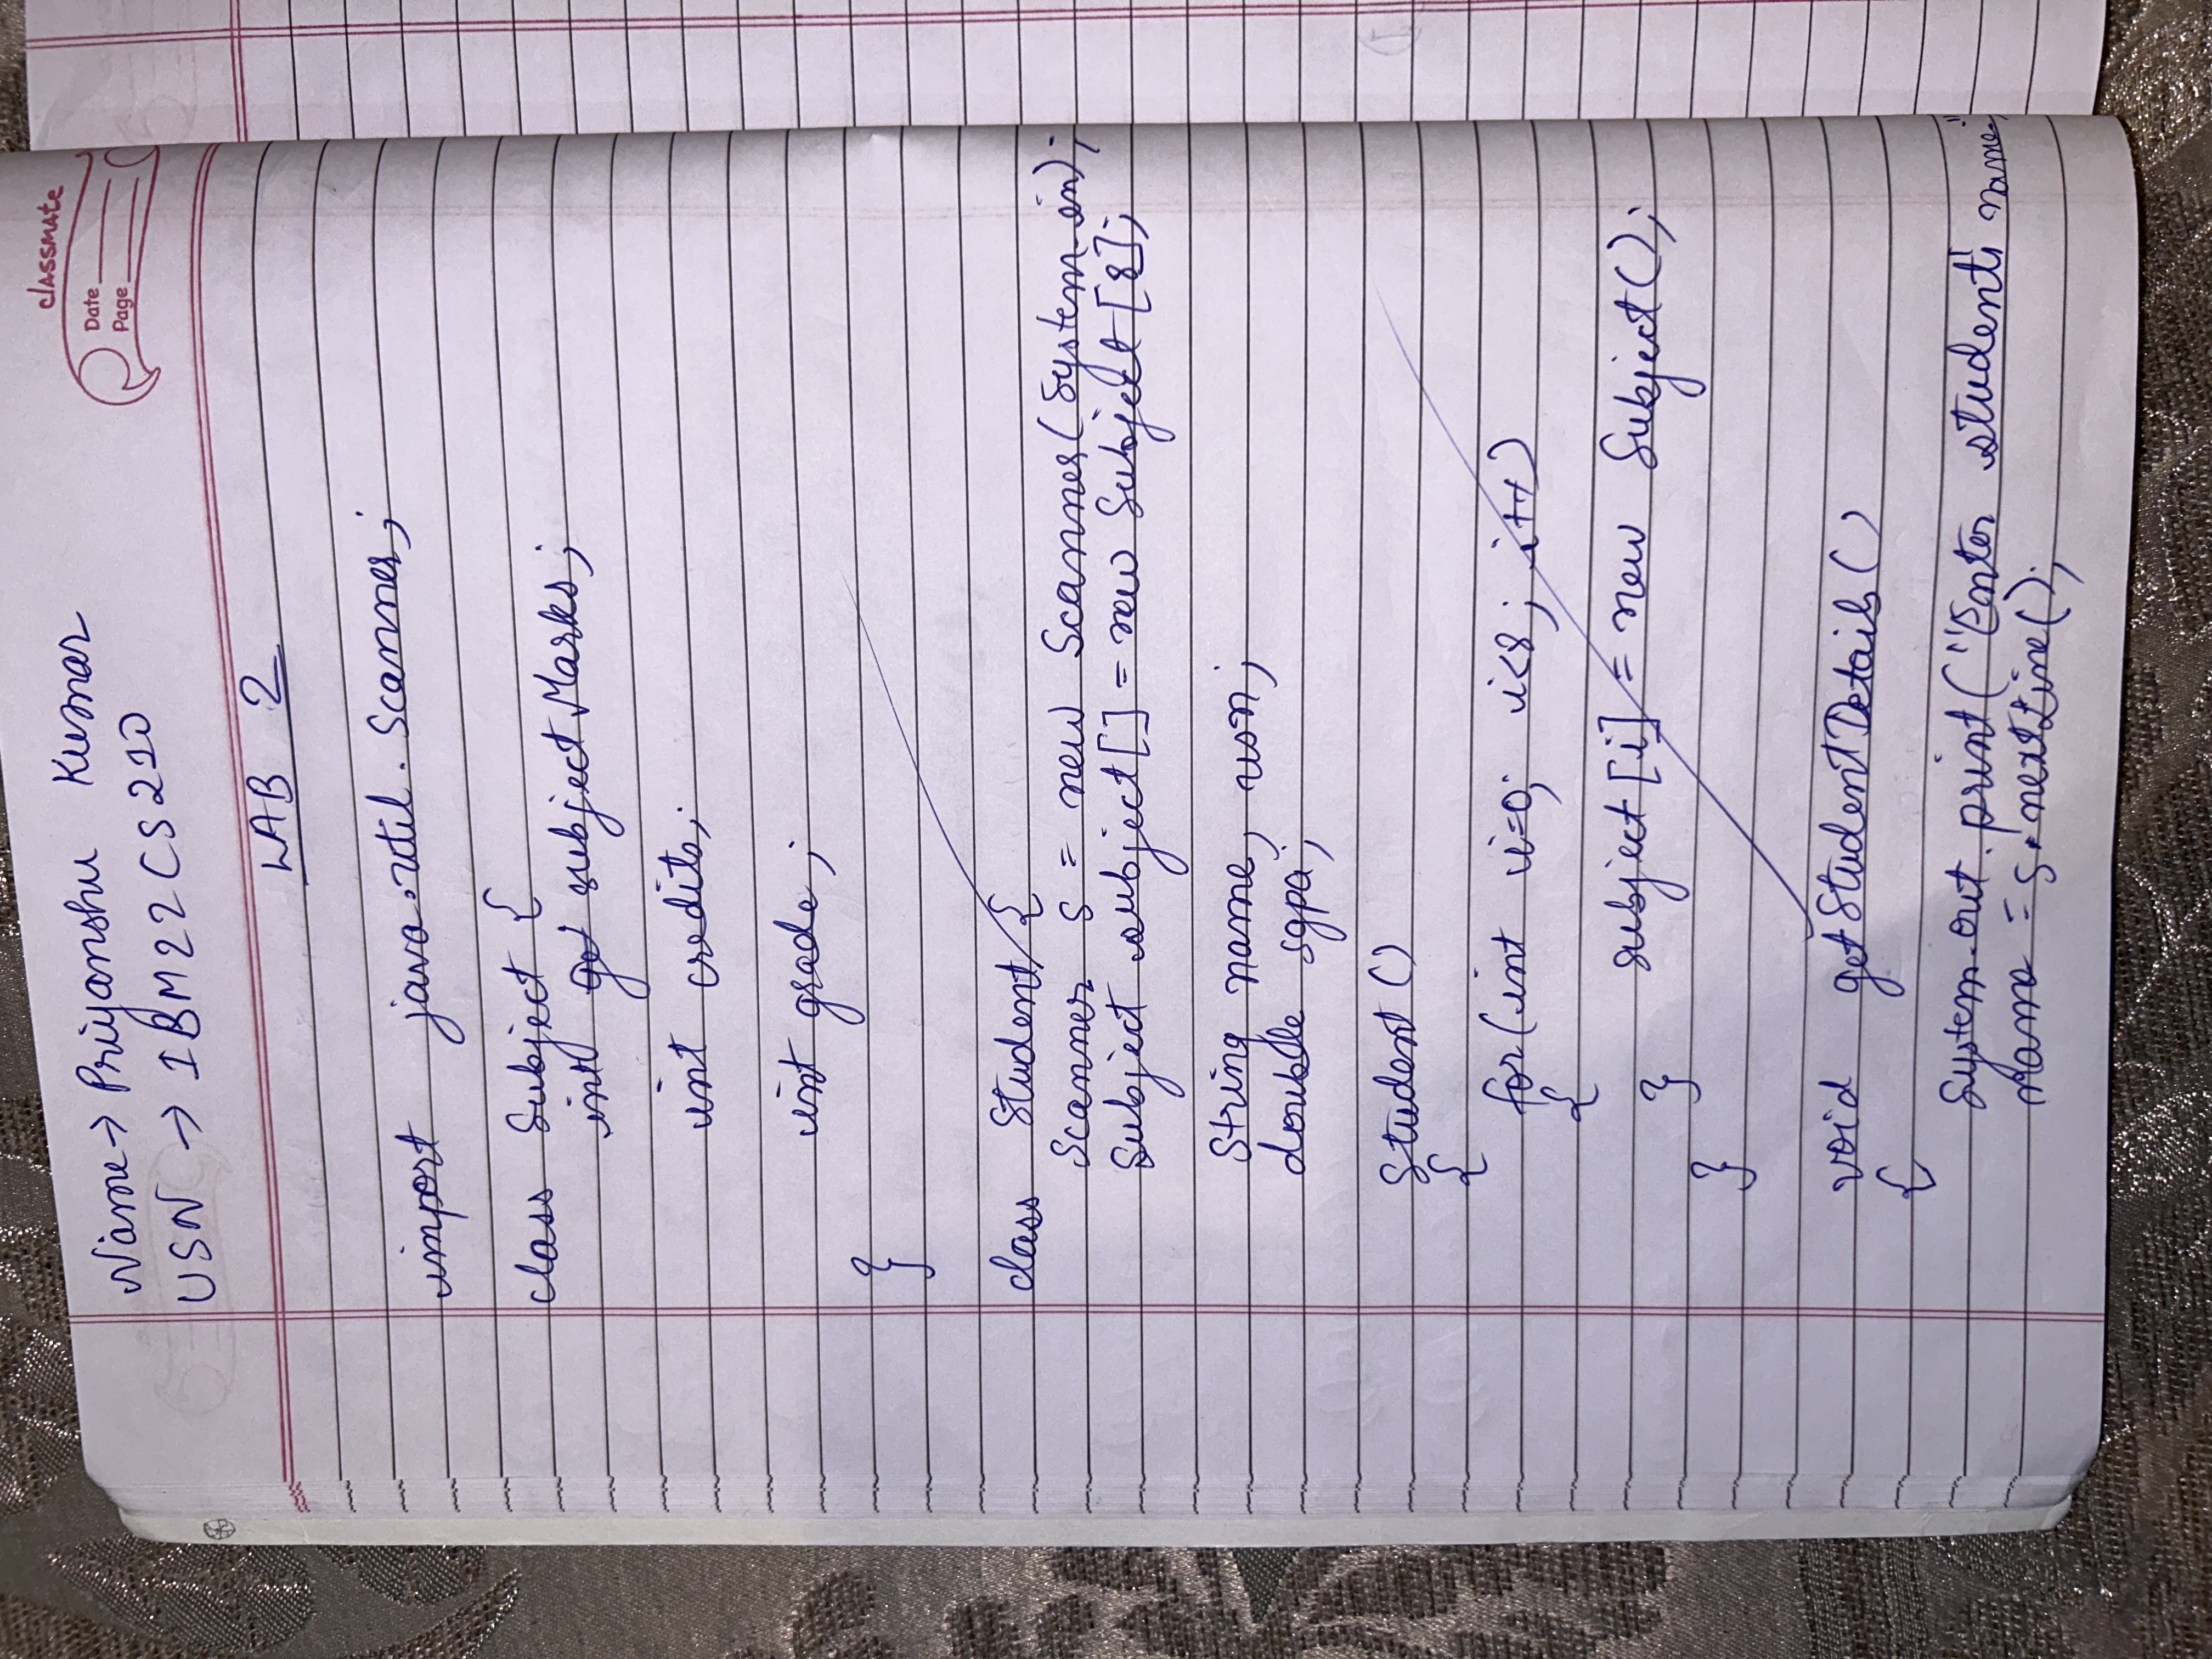 classmate
Date
Page
Name → Priyanshu Kumar
USN → 1BM22CS210
LAB 2
import java.util.Scanner;
class Subject {
int subjectMarks;
int credits;
int grade;
}
class Student {
Scanner s = new Scanner(System.in);
Subject subject[] = new Subject[8];
String name, usn;
double sgpa;
Student()
{
for(int i=0; i<8; i++)
{
subject[i] = new Subject();
}
}
void getStudentDetails()
{
System.out.print("Enter student's name"
name = s.nextLine();